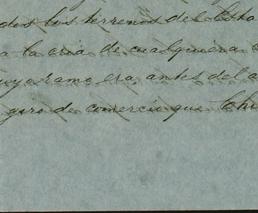 dos los terrenos del Esta
a la cria de cualquiera
cuyo ramo era antes del a
giro de comercio que Chi